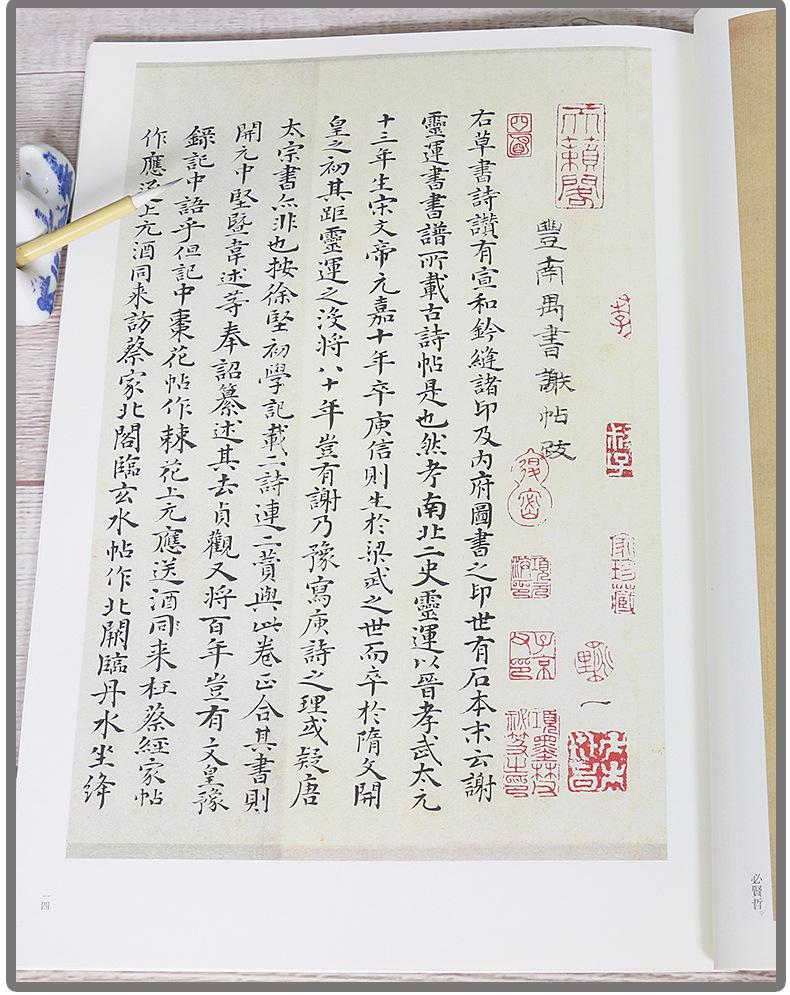 天籟閣
豐南禺書謝帖跋
家珍藏
項元汴印
子京父印
右草書詩讚有宣和鈐縫諸印及內府圖書之印世有石本末云謝
靈運書書譜所載古詩帖是也然考南北二史靈運以晉孝武太元
十三年生宋文帝元嘉十年卒庾信則生於梁武之世而卒於隋文開
皇之初其距靈運之没將八十年豈有謝乃豫寫庾詩之理或疑唐
太宗書亦非也按徐堅初學記載二詩連二贊與此卷正合其書則
開元中堅暨韋述等奉詔纂述其去貞觀又將百年豈有文皇豫
錄記中語乎但記中棗花帖作棘花上元應送酒同来枉蔡經家帖
作應上元酒同来訪蔡家北閣臨玄水帖作北闕臨丹水坐絳
一四
必賢哲。